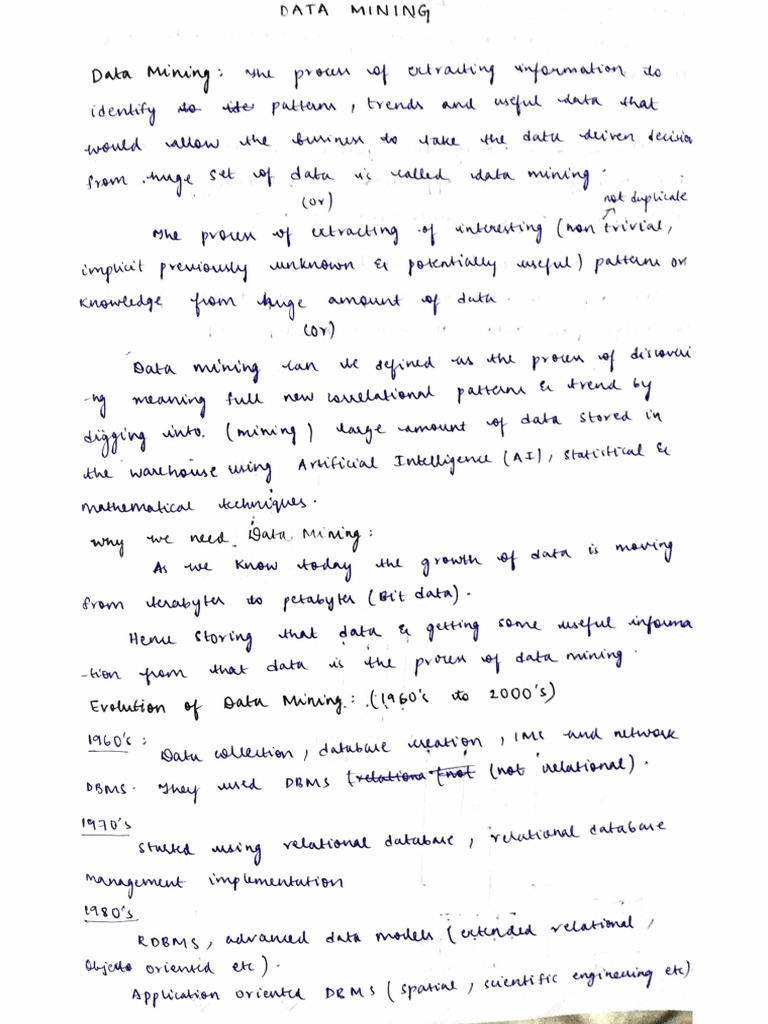 DATA MINING
Data Mining: The process of extracting information to
identify to ide patterns, trends and useful data that
would allow the business to take the data driven decision
from huge set of data is called data mining.
(or)
not duplicate
The process of extracting of interesting (non trivial,
implicit previously unknown & potentially useful) patterns or
knowledge from huge amount of data.
(or)
Data mining can be defined as the process of discoveri
-ng meaning full new correlational patterns & trend by
digging into. (mining) large amount of data stored in
the warehouse using Artificial Intelligence (AI), statistical &
mathematical techniques.
Why we need Data Mining:
As we know today the growth of data is moving
from terabytes to petabytes (Bit data).
Hence storing that data & getting some useful informa
-tion from that data is the process of data mining.
Evolution of Data Mining: (1960's to 2000's)
1960's:
Data collection, database creation, IMS and network
DBMS. They used DBMS (relationa (not (not relational).
1970's
Started using relational database, relational database
management implementation
1980's
RDBMS, advanced data models (extended relational,
Objects oriented etc).
Application oriented DBMS (spatial, scientific engineering etc)